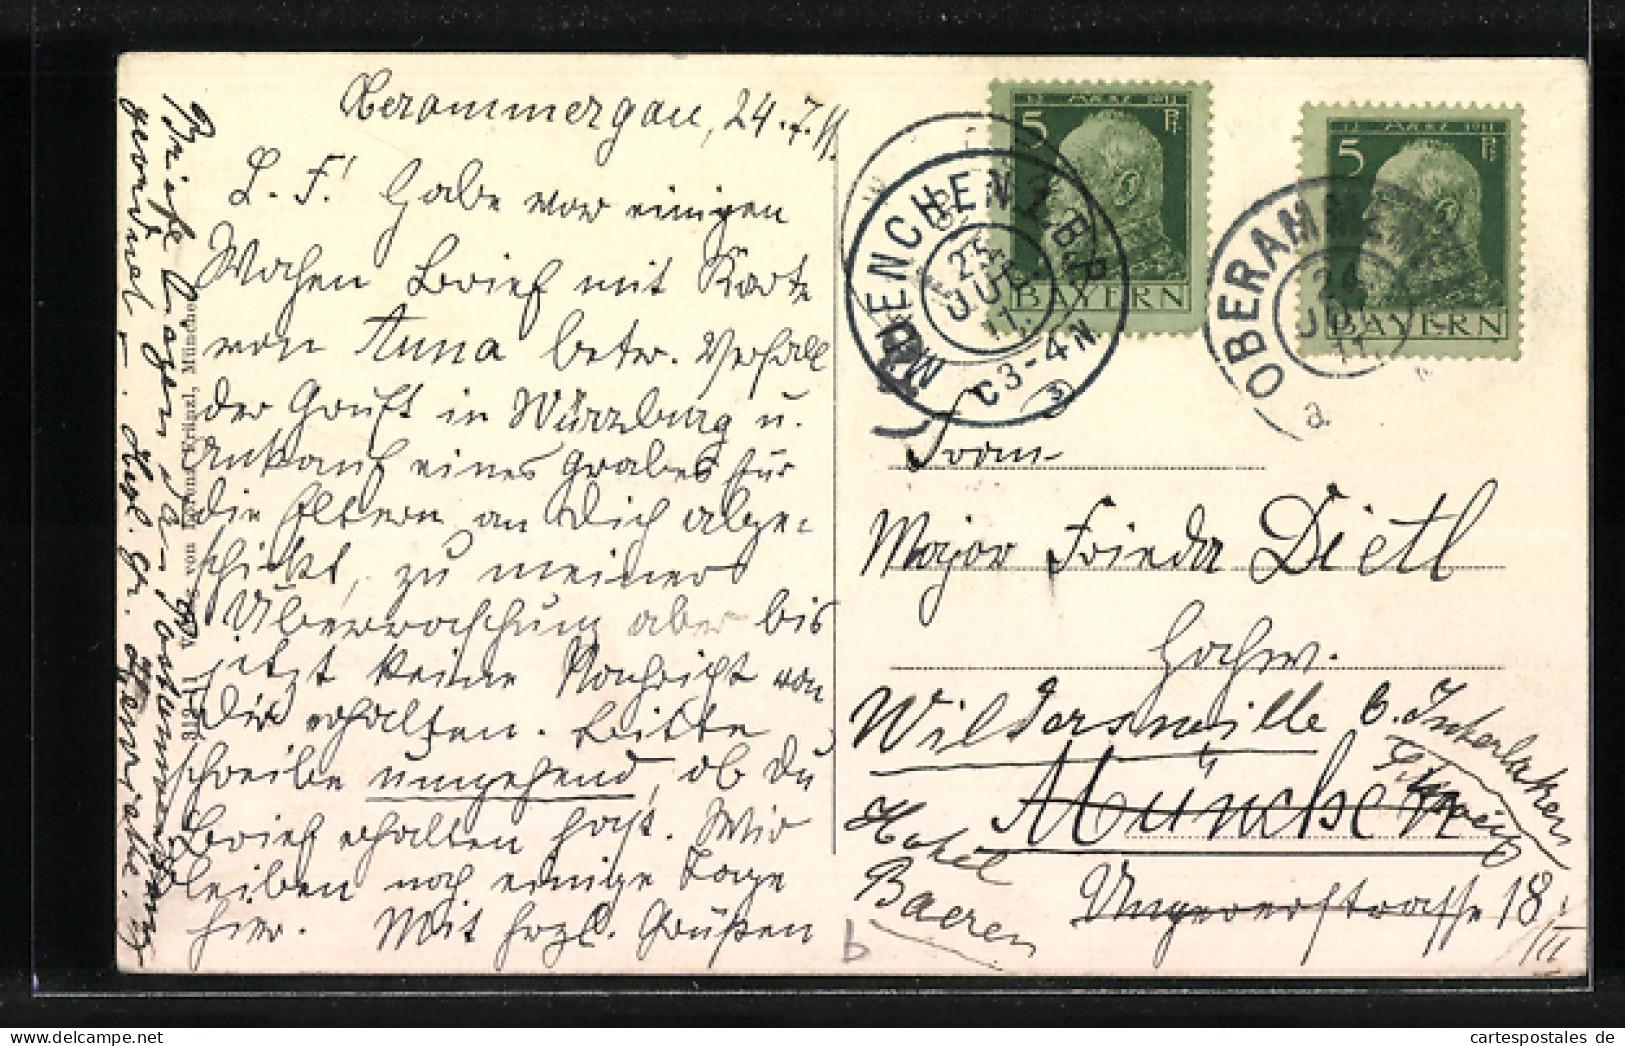 Oberammergau, 24.7.11.
L. F.! Habe vor einigen
Wochen Brief mit Karte
von Anna betr. Verfall
der Gruft in Würzburg u.
Ankauf eines Grabes für
die Eltern an Dich abge-
schickt, zu meiner
Überraschung aber bis
jetzt keine Nachricht von
Dir erhalten. Bitte
schreibe umgehend, ob Du
Brief erhalten hast. Wir
bleiben noch einige Tage
hier. Mit hrzl. Grüßen
312-11 von Lorenz Fränzl, München
12. MÄRZ 1911
5 Pf.
BAYERN
12. MÄRZ 1911
5 Pf.
BAYERN
MUENCHEN 2. B.P.
25. JUL. 11.
C3-4 N.
3)
OBERAMMERG
24 JUL 11.
a
Frau
Major Frieda Dietl
Hochw.
Wilderswille b. Interlaken
Schweiz
München
Hotel
Baeren
Ungererstrasse 18
/II
b
cartespostales.de